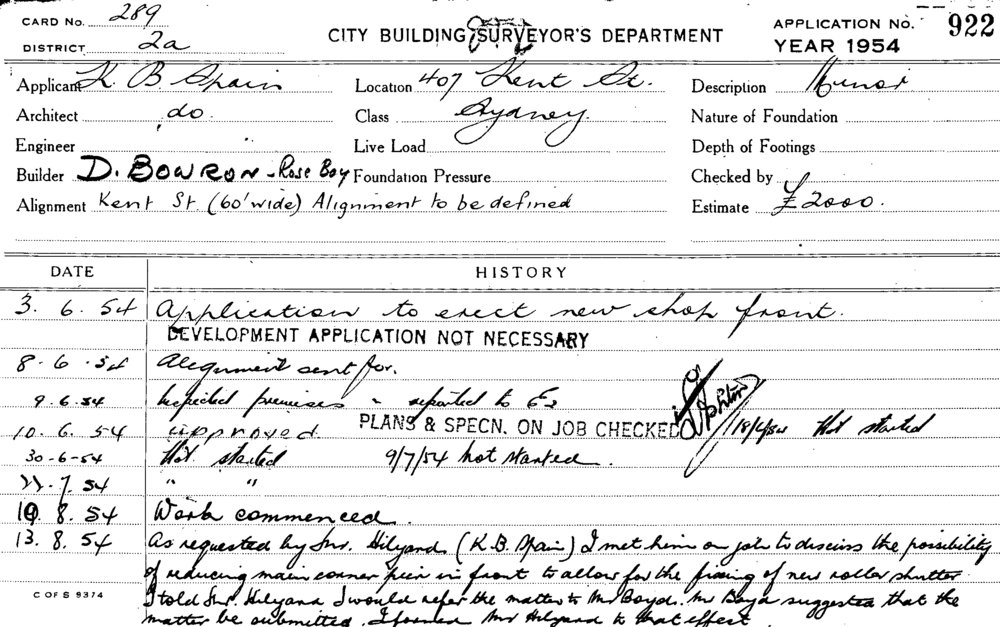 CARD No. 289
DISTRICT 2a
CITY BUILDING SURVEYOR'S DEPARTMENT
APPLICATION No. 922
YEAR 1954
Applicant K. B. Spain
Location 407 Kent St.
Description Minor
Architect do.
Class Sydney.
Nature of Foundation
Engineer
Live Load
Depth of Footings
Builder D. BOWRON - Rose Bay
Foundation Pressure
Checked by
Alignment Kent St (60' wide) Alignment to be defined
Estimate £2000.
DATE HISTORY
3. 6. 54 Application to erect new shop front.
DEVELOPMENT APPLICATION NOT NECESSARY
8. 6. 54 Alignment sent for.
9. 6. 54 Inspected premises - reported to
10. 6. 54 approved. PLANS & SPECN. ON JOB CHECKED 18/6/54 Not started
30-6-54 Not started 9/7/54 not started.
7. 54 " "
10. 8. 54 Work commenced.
13. 8. 54 As requested by Mr. Hilyard (K.B. Spain) I met him on job to discuss the possibility
of reducing main corner pier in front to allow for the fixing of new roller shutter
I told Mr. Hilyard I would refer the matter to Mr Boyd. Mr Boyd suggested that the
C OF S 9374
matter be submitted. I Mr Hilyard to that effect